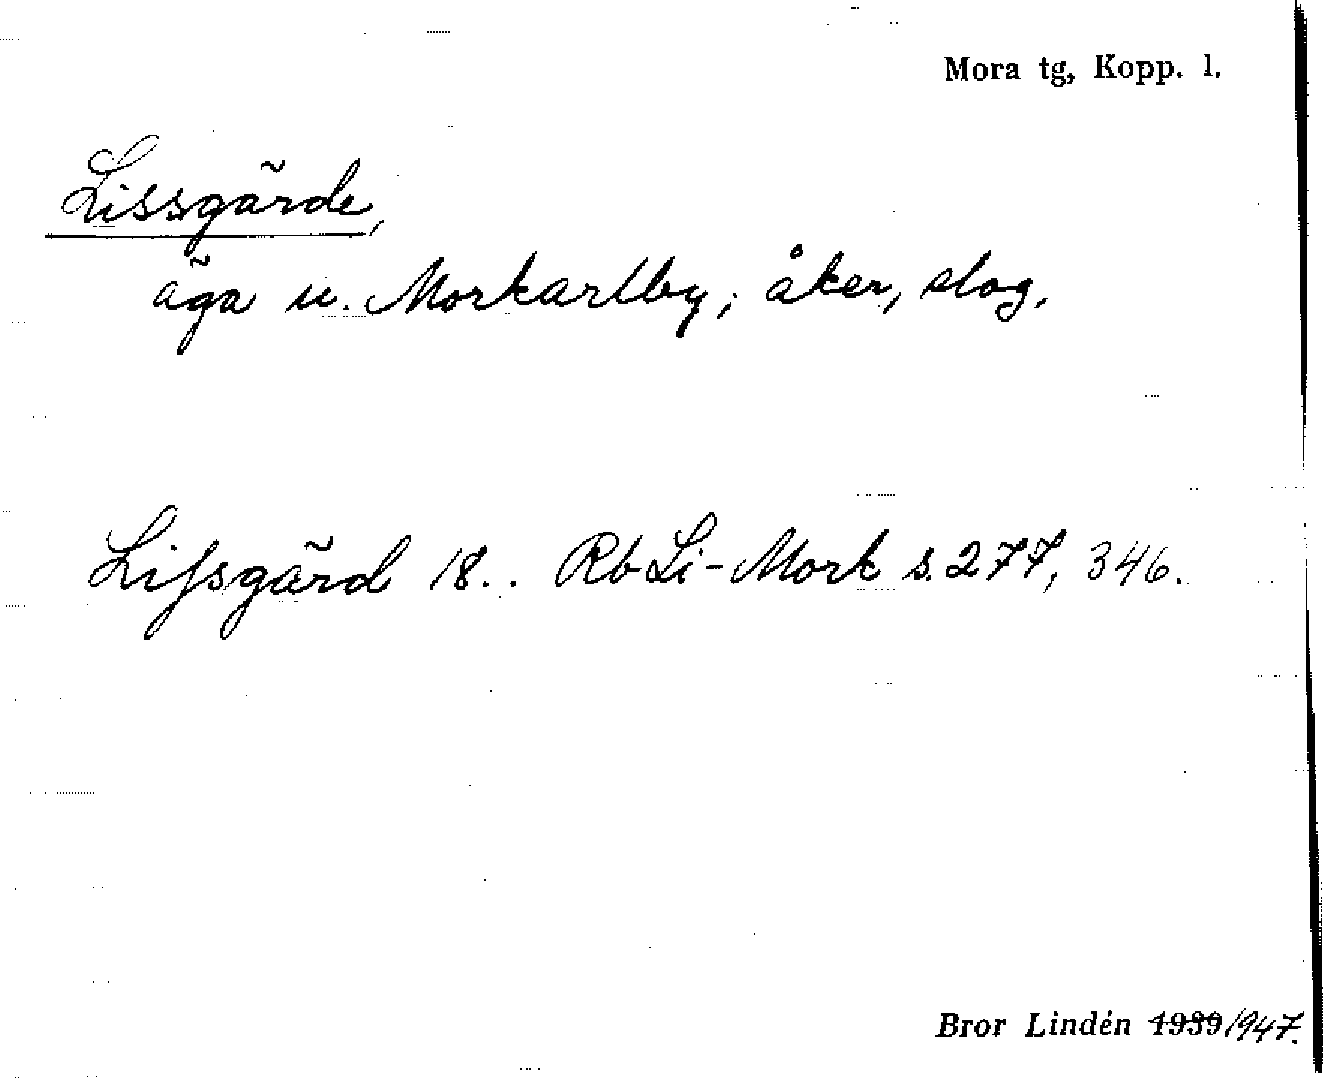 Mora tg, Kopp. l.
Lissgärde,
äga u. Morkarlby; åker, slog.
Lifsgärd 18.. Rb Li-Mork s. 277, 346.
Bror Lindén 1939 1947.